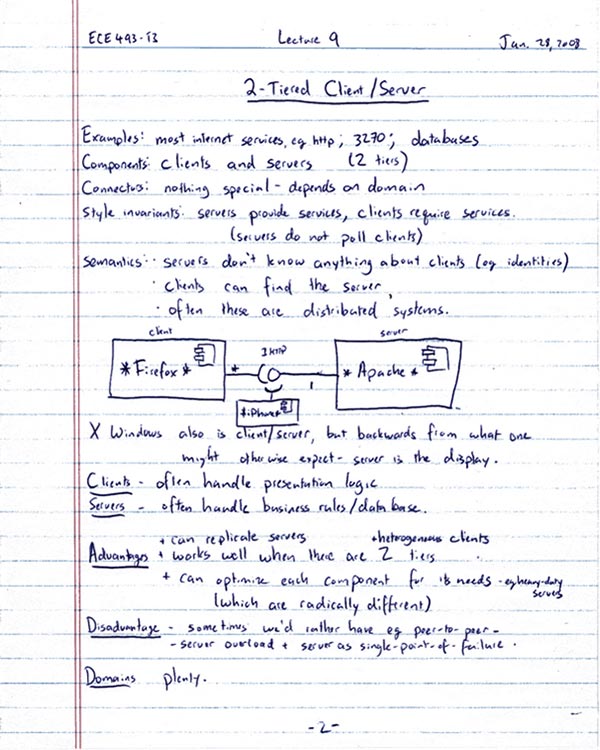 ECE 493-T3 Lecture 9 Jan. 28, 2008
2-Tiered Client/Server
Examples: most internet services, eg http; 3270; databases
Components: clients and servers (2 tiers)
Connectors: nothing special - depends on domain
Style invariants: servers provide services, clients require services.
(servers do not poll clients)
semantics: · servers don't know anything about clients (eg identities)
· clients can find the server
· often these are distributed systems.
client server
IHTTP
*Firefox* * 1 *Apache*
*iPhone*
X Windows also is client/server, but backwards from what one
might otherwise expect - server is the display.
Clients - often handle presentation logic
Servers - often handle business rules/database.
+ can replicate servers + heterogenous clients
Advantages + works well when there are 2 tiers
+ can optimize each component for its needs - eg heavy-duty
servers
(which are radically different)
Disadvantage - sometimes we'd rather have eg peer-to-peer-
- server overload + server as single-point-of-failure.
Domains plenty.
-2-